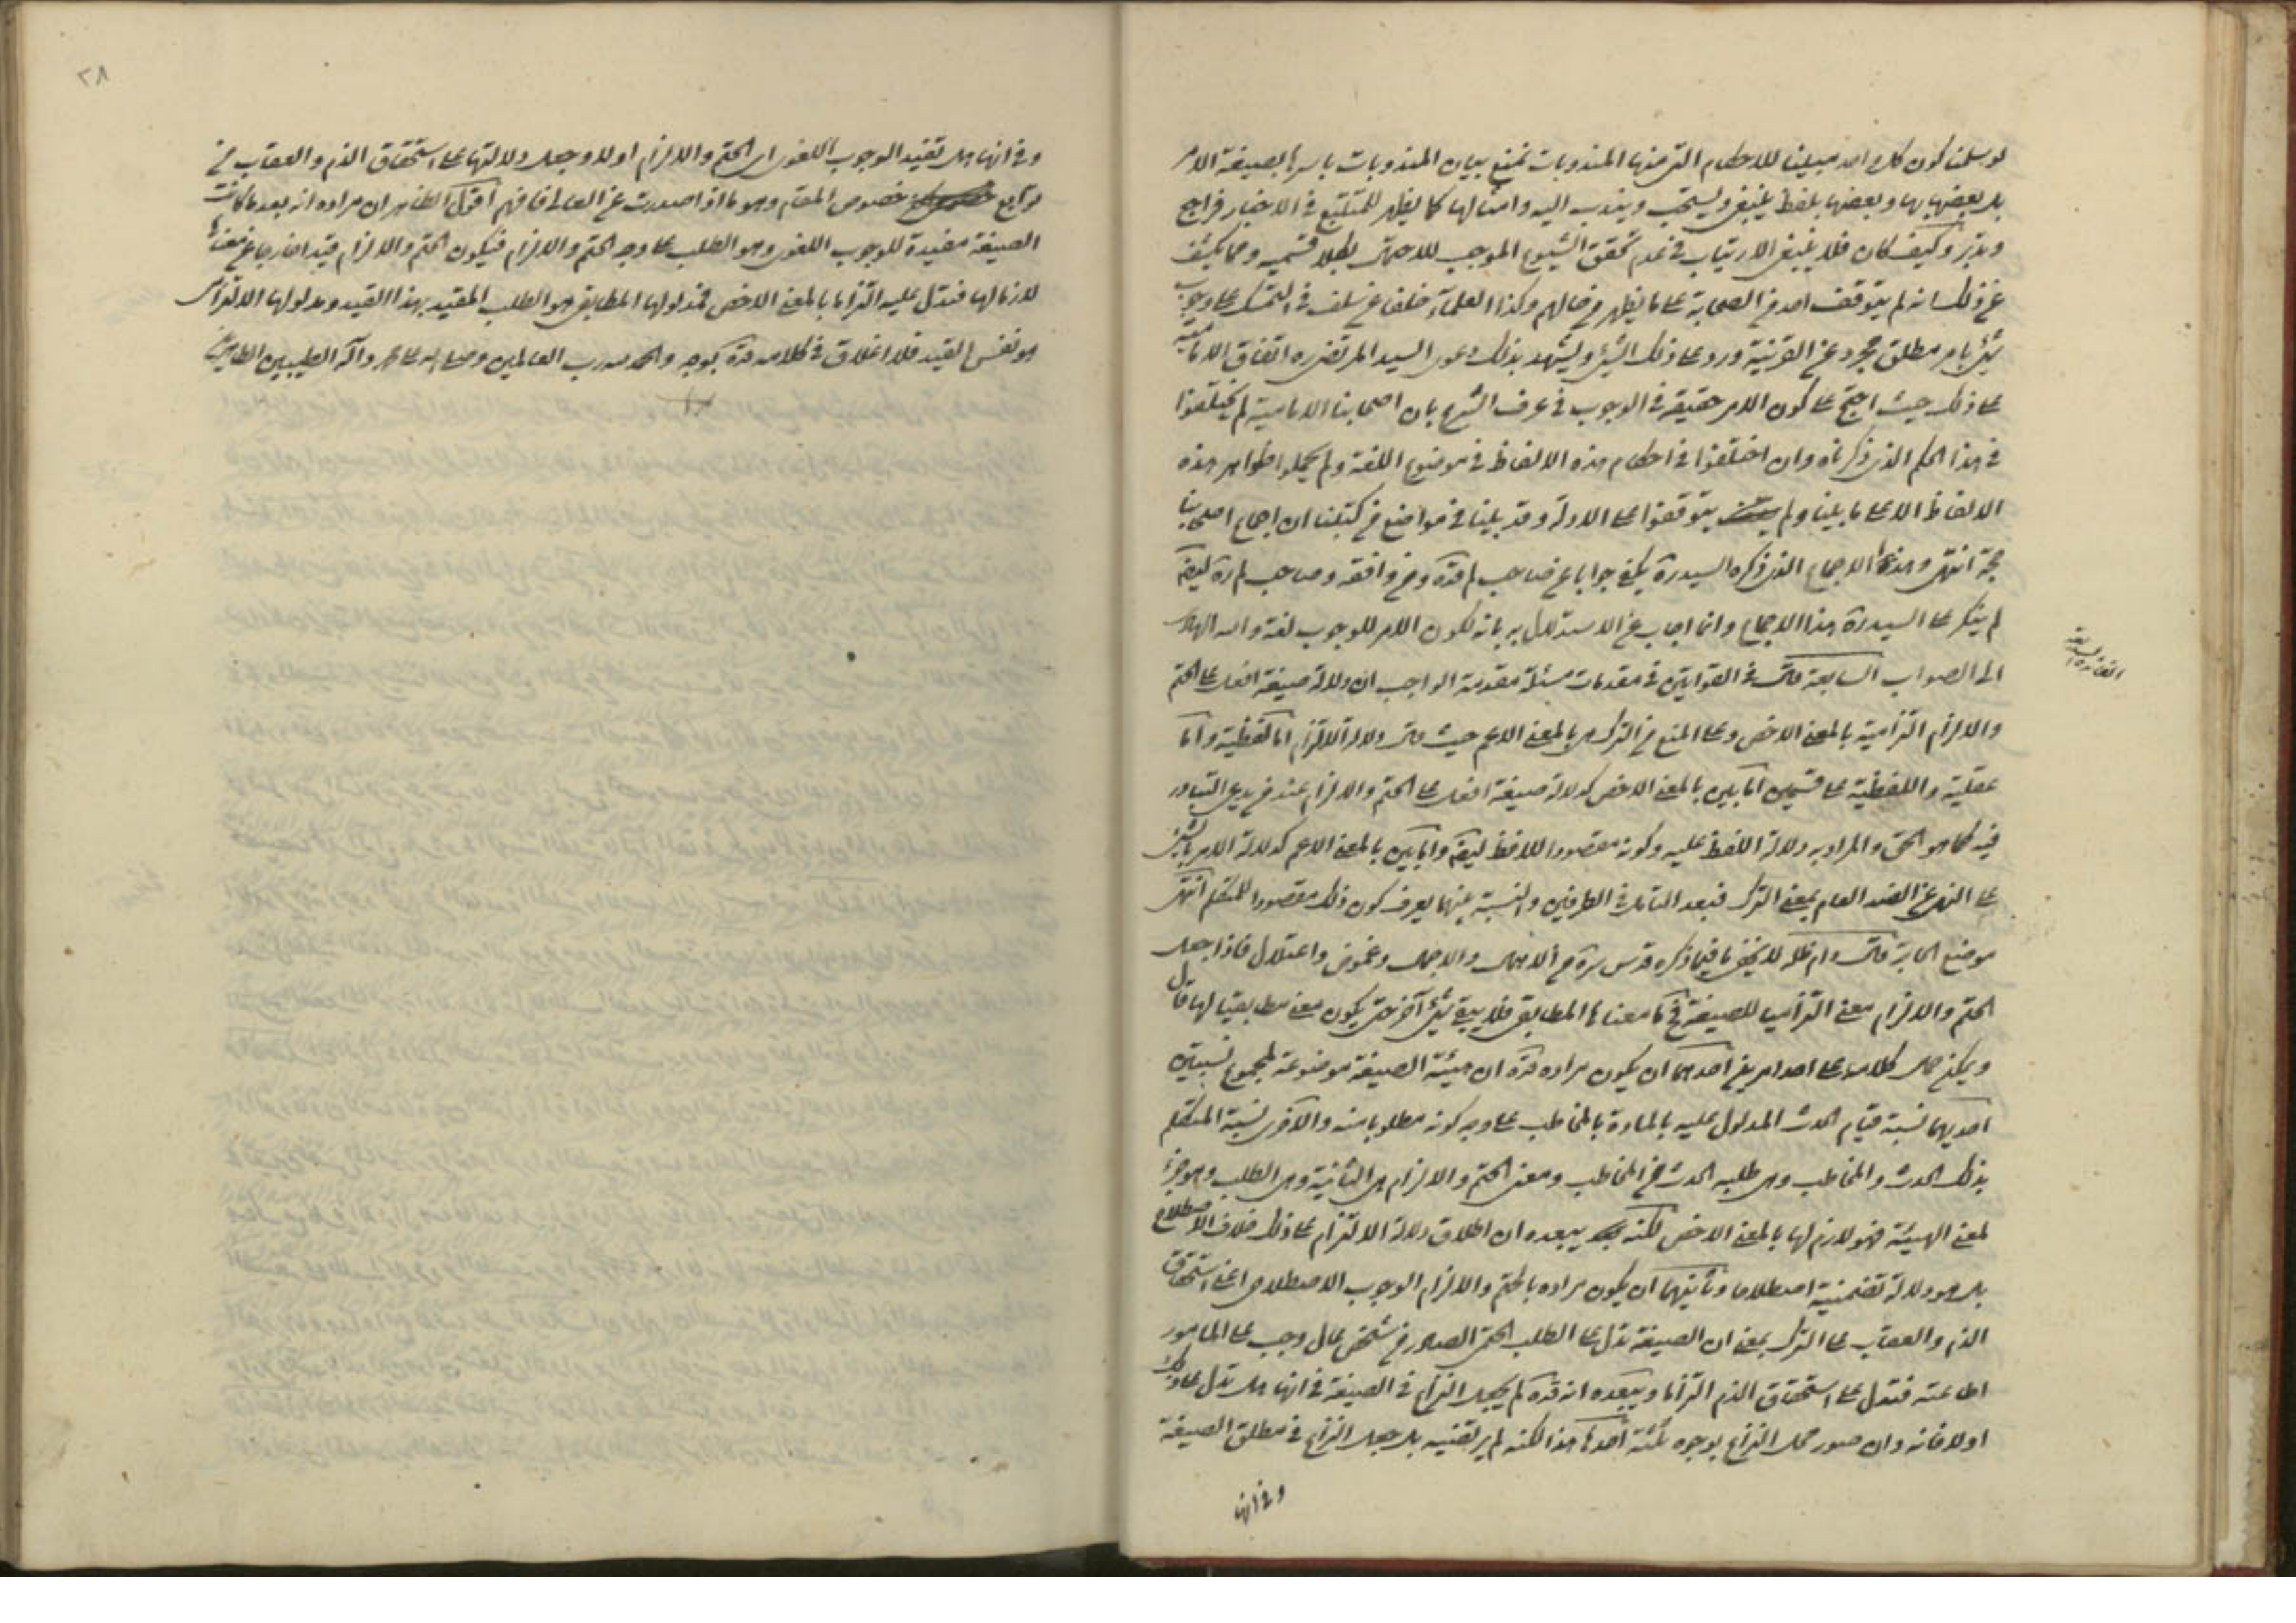 لو سلمنا كون كل واحد مبينا للاحكام التى منها المندوبات نمنع بيان المندوبات باسرها بصيغة الامر
بل بعضها بها وبعضها بلفظ ينبغى ويستحب ويندب اليه وامثالها كما يظهر للمتتبع فى الاخبار فراجع
وتدبر وكيف كان فلا ينبغى الارتياب فى عدم تحقق الشيوع الموجب للاجمال بكلا قسميه ومما يكشف
عن ذلك انه لم يتوقف احد من الصحابة على ما يظهر من حالهم وكذا العلماء خلفا عن سلف فى التمسك على وجوب
شئ بامر مطلق مجرد عن القرينة ورد على ذلك الشئ ويشهد بذلك دعوى السيد المرتضى ره اتفاق الامامية
على ذلك حيث احتج على كون الامر حقيقة فى الوجوب فى عرف الشرع بان اصحابنا الامامية لم يختلفوا
فى هذا الحكم الذى ذكرناه وان اختلفوا فى احكام هذه الالفاظ فى موضوع اللغة ولم يحملوا ظواهر هذه
الالفاظ الا على ما بينا ولم يتوقفوا على الادلة وقد بينا فى مواضع من كتبنا ان اجماع اصحابنا
حجة انتهى وهذا الاجماع الذى ذكره السيد ره يكفى جوابا عن صاحب لم قده ومن وافقه وصاحب لم ره ايضا
لم ينكر على السيد ره هذا الاجماع وانما اجاب عن الاستدلال به بانه لكون الامر للوجوب لغة والله الهادى
الى الصواب السابعة قال فى القوانين فى مقدمات مسئلة مقدمة الواجب ان دلالة صيغة افعل على الحتم
والالزام التزامية بالمعنى الاخص وعلى المنع من الترك بالمعنى الاعم حيث قال دلالة الالتزام اما لفظية واما
عقلية واللفظية على قسمين اما بين بالمعنى الاخص كدلالة صيغة افعل على الحتم والالزام عند من يدعى التبادر
فيه كما هو الحق والمراد به دلالة اللفظ عليه وكونه مقصودا للافظ ايضا واما بين بالمعنى الاعم كدلالة الامر بالشئ
على النهى عن الضد العام بمعنى الترك فبعد التامل فى الطرفين والنسبة بينهما يعرف كون ذلك مقصودا للمتكلم انتهى
موضع الحاجة قال دام ظله لا يخفى ما فيما ذكره قدس سره من الاهمال والاجمال وغموض واعتلال فاذا جعل
الحتم والالزام معنى التزاميا للصيغة فما معناها المطابقى فلا يبقى شئ آخر حتى يكون معنى مطابقيا لها قال
ويمكن حمل كلامه على احد امرين احدهما ان يكون مراده قده ان هيئة الصيغة موضوعة لمجموع نسبتين
احديهما نسبة قيام الحدث المدلول عليه بالمادة بالمخاطب على وجه كونه مطلوبا منه والاخرى نسبة المتكلم
بذلك الحدث والمخاطب وهى طلبه الحدث من المخاطب ومعنى الحتم والالزام هى الثانية وهى الطلب وهو جزء
لمعنى الهيئة فهو لازم لها بالمعنى الاخص لكنه يبعده ان اطلاق دلالة الالتزام على ذلك خلاف الاصطلاح
بل هو دلالة تضمنية اصطلاحا وثانيهما ان يكون مراده بالحتم والالزام الوجوب الاصطلاحى اعنى استحقاق
الذم والعقاب على الترك بمعنى ان الصيغة تدل على الطلب الحتمى الصادر من شخص عال وجب على المامور
اطاعته فتدل على استحقاق الذم التزاما ويبعده انه قده لم يجعل النزاع فى الصيغة فى انها هل تدل على ذلك
اولا فانه وان صور محل النزاع بوجوه ثلثة احدها هذا لكنه لم يرتضيه بل جعل النزاع فى مطلق الصيغة
وفى انها
٢٨
وفى انها هل تفيد الوجوب اللغوى اى الحتم والالزام اولا وجعل دلالتها على استحقاق الذم والعقاب من
توابع خصوص المقام وهو ما اذا صدرت عن العالى فافهم اقول الظاهر ان مراده انه بعد ما كانت
الصيغة مفيدة للوجوب اللغوى وهو الطلب على وجه الحتم والالزام فيكون الحتم والالزام قيدا خارجا عن معناها
لازما لها فتدل عليه التزاما بالمعنى الاخص فمدلولها المطابقى هو الطلب المقيد بهذا القيد ومدلولها الالتزامى
هو نفس القيد فلا اغلاق فى كلامه قده بوجه والحمد لله رب العالمين وصلى الله على محمد وآله الطيبين الطاهرين